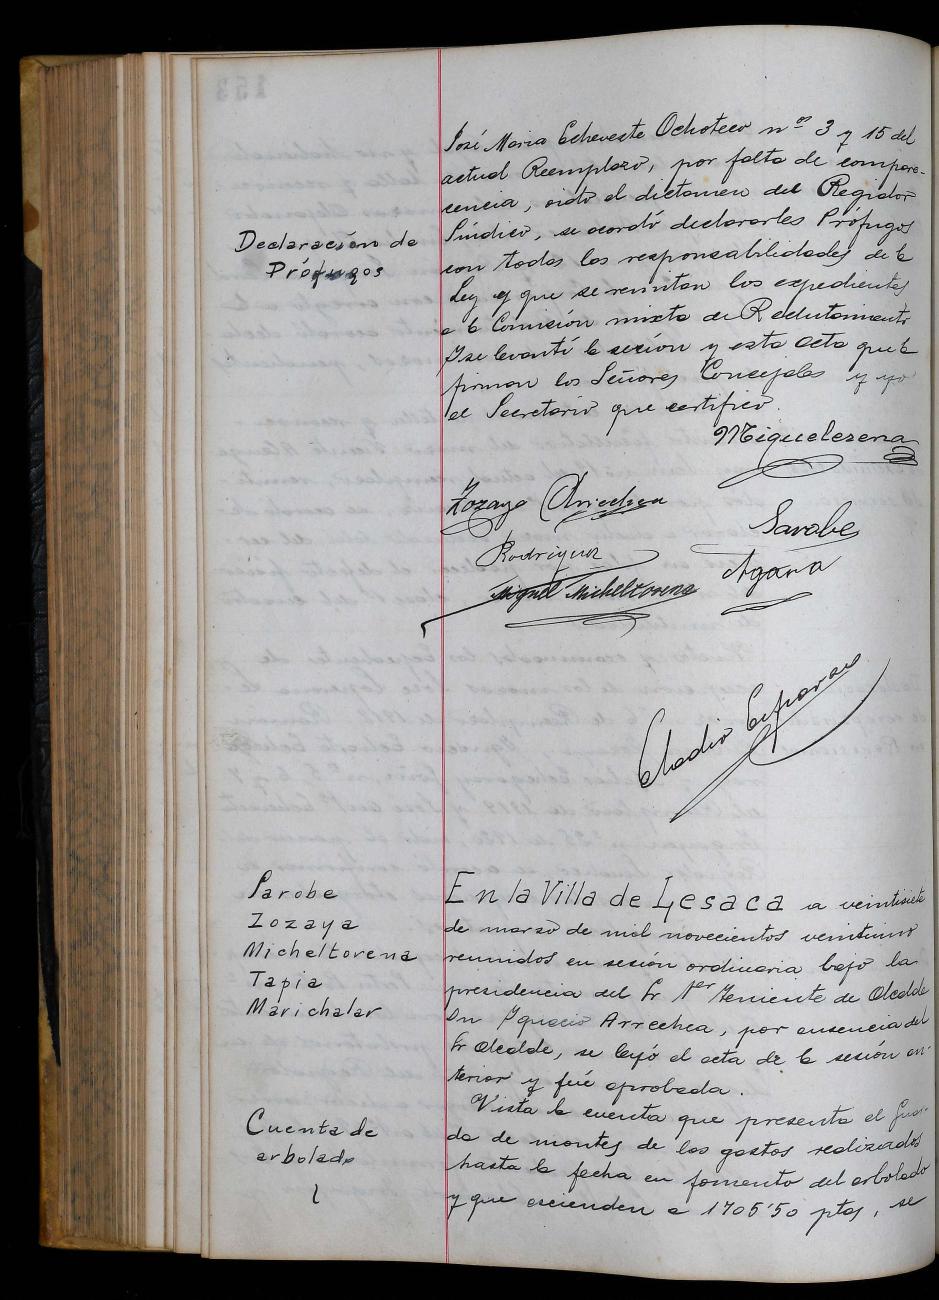 José Maria Echeveste Ochoteco nos 3 y 15 del
actual Reemplazo, por falta de compare-
cencia, oido el dictamen del Regidor
Síndico, se acordó declararles Prófugos
Declaración de
Prófugos
con todas las responsabilidades de la
Ley y que se remitan los expedientes
a la Comisión mixta de Reclutamiento
Y se levantó la sesión y esta acta que la
firman los Señores Concejales y yo
el Secretario que certifico.
Miguelezena
Zozaya Arrechea
Sarobe
Rodriguez
Agara
Miguel Micheltorena
Eladio Esparza
Parobe
Zozaya
Micheltorena
Tapia
Marichalar
En la Villa de Lesaca a veintisiete
de marzo de mil novecientos veintiuno
reunidos en sesión ordinaria bajo la
presidencia del Sr 1er Teniente de Alcalde
Dn Ygnacio Arrechea, por ausencia del
Sr Alcalde, se leyó el acta de la sesión an-
terior y fué aprobada.
Cuenta de
arbolado
Vista la cuenta que presenta el Guar-
da de montes de los gastos realizados
hasta la fecha en fomento del arbolado
y que ascienden a 1705'50 ptas, se